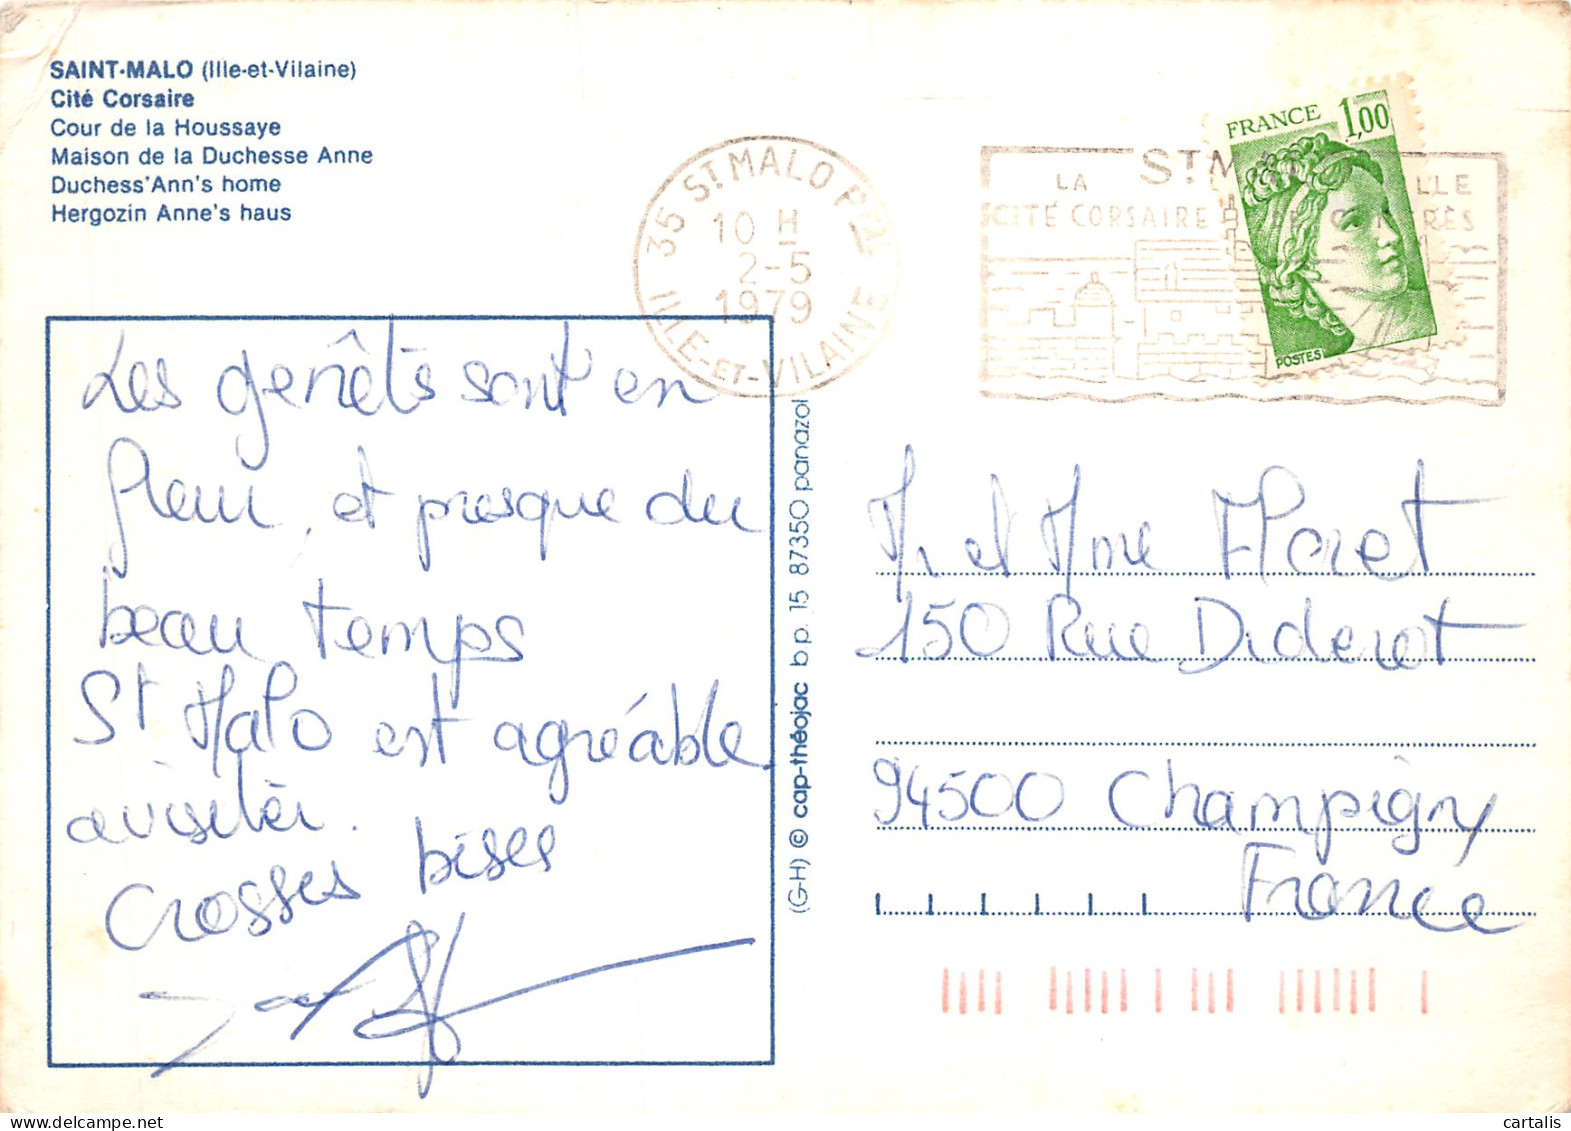 SAINT-MALO (Ille-et-Vilaine)
Cité Corsaire
Cour de la Houssaye
Maison de la Duchesse Anne
Duchess'Ann's home
Hergozin Anne's haus
35 ST MALO PPAL
10 H
2-5
1979
ILLE-ET-VILAINE
ST M
LA
CITÉ CORSAIRE
FRANCE 1,00
POSTES
Les genêts sont en
fleur, et presque du
beau temps
St Malo est agréable
a visiter.
Grosses bises
(G-H) © cap-théojac bp. 15 87350 panazol
Mr et Mme Floret
150 Rue Diderot
94500 Champigny
France
cartalis